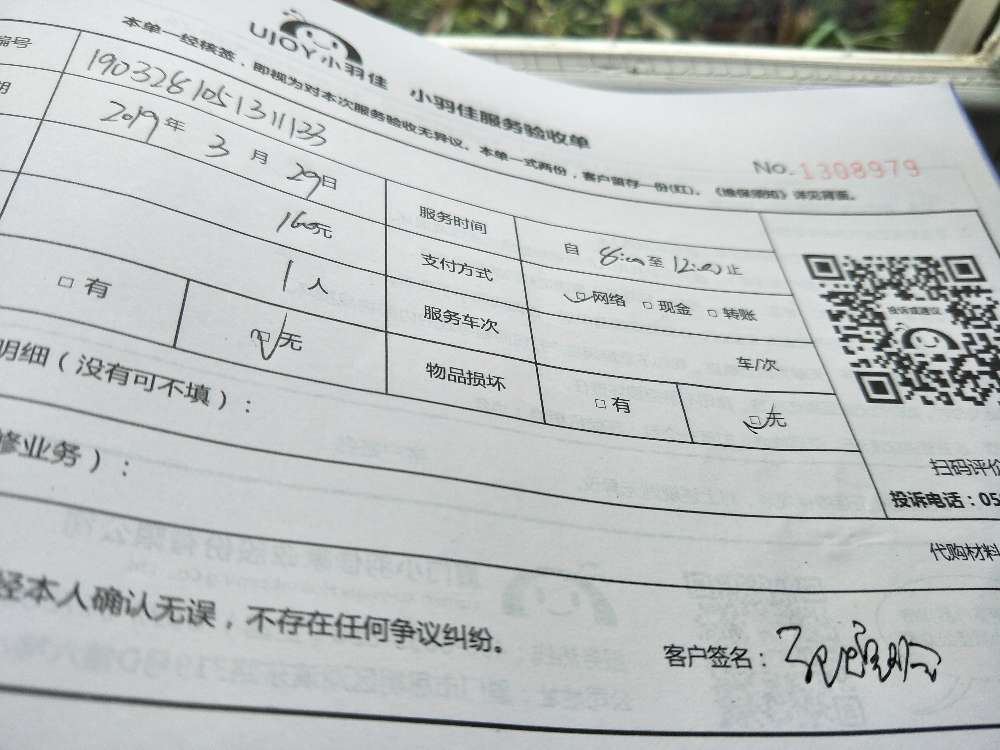 UJOY小羽佳 小羽佳服务验收单
本单一经核签，即视为对本次服务验收无异议。本单一式两份，客户留存一份(红)。《维保须知》详见背面。
No.1308979
编号 190328105131133
期 2019年3月29日 服务时间 自 8:00至12:00止
160元 支付方式 □网络 □现金 □转账
1人 服务车次 车/次
□有 □无 物品损坏 □有 □无
投诉或建议
明细（没有可不填）：
扫码评价
投诉电话：05
修业务）：
代购材料
经本人确认无误，不存在任何争议纠纷。
客户签名：